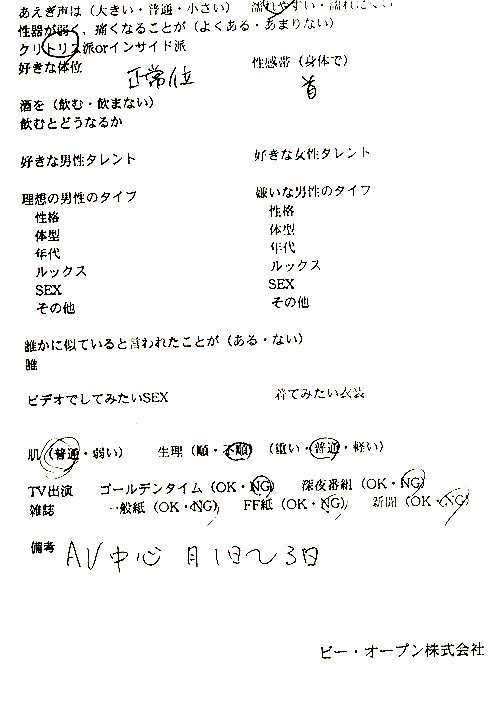 あえぎ声は（大きい・普通・小さい）　濡れやすい・濡れにくい
性器が弱く、痛くなることが（よくある・あまりない）
クリトリス派orインサイド派
好きな体位　正常位　性感帯（身体で）　首
酒を（飲む・飲まない）
飲むとどうなるか
好きな男性タレント　好きな女性タレント
理想の男性のタイプ　嫌いな男性のタイプ
性格　性格
体型　体型
年代　年代
ルックス　ルックス
SEX　SEX
その他　その他
誰かに似ていると言われたことが（ある・ない）
誰
ビデオでしてみたいSEX　着てみたい衣装
肌（普通・弱い）　生理（順・不順）（重い・普通・軽い）
TV出演　ゴールデンタイム（OK・NG）　深夜番組（OK・NG）
雑誌　一般紙（OK・NG）　FF紙（OK・NG）　新聞（OK・NG）
備考　AV中心　月1日〜3日
ビー・オープン株式会社